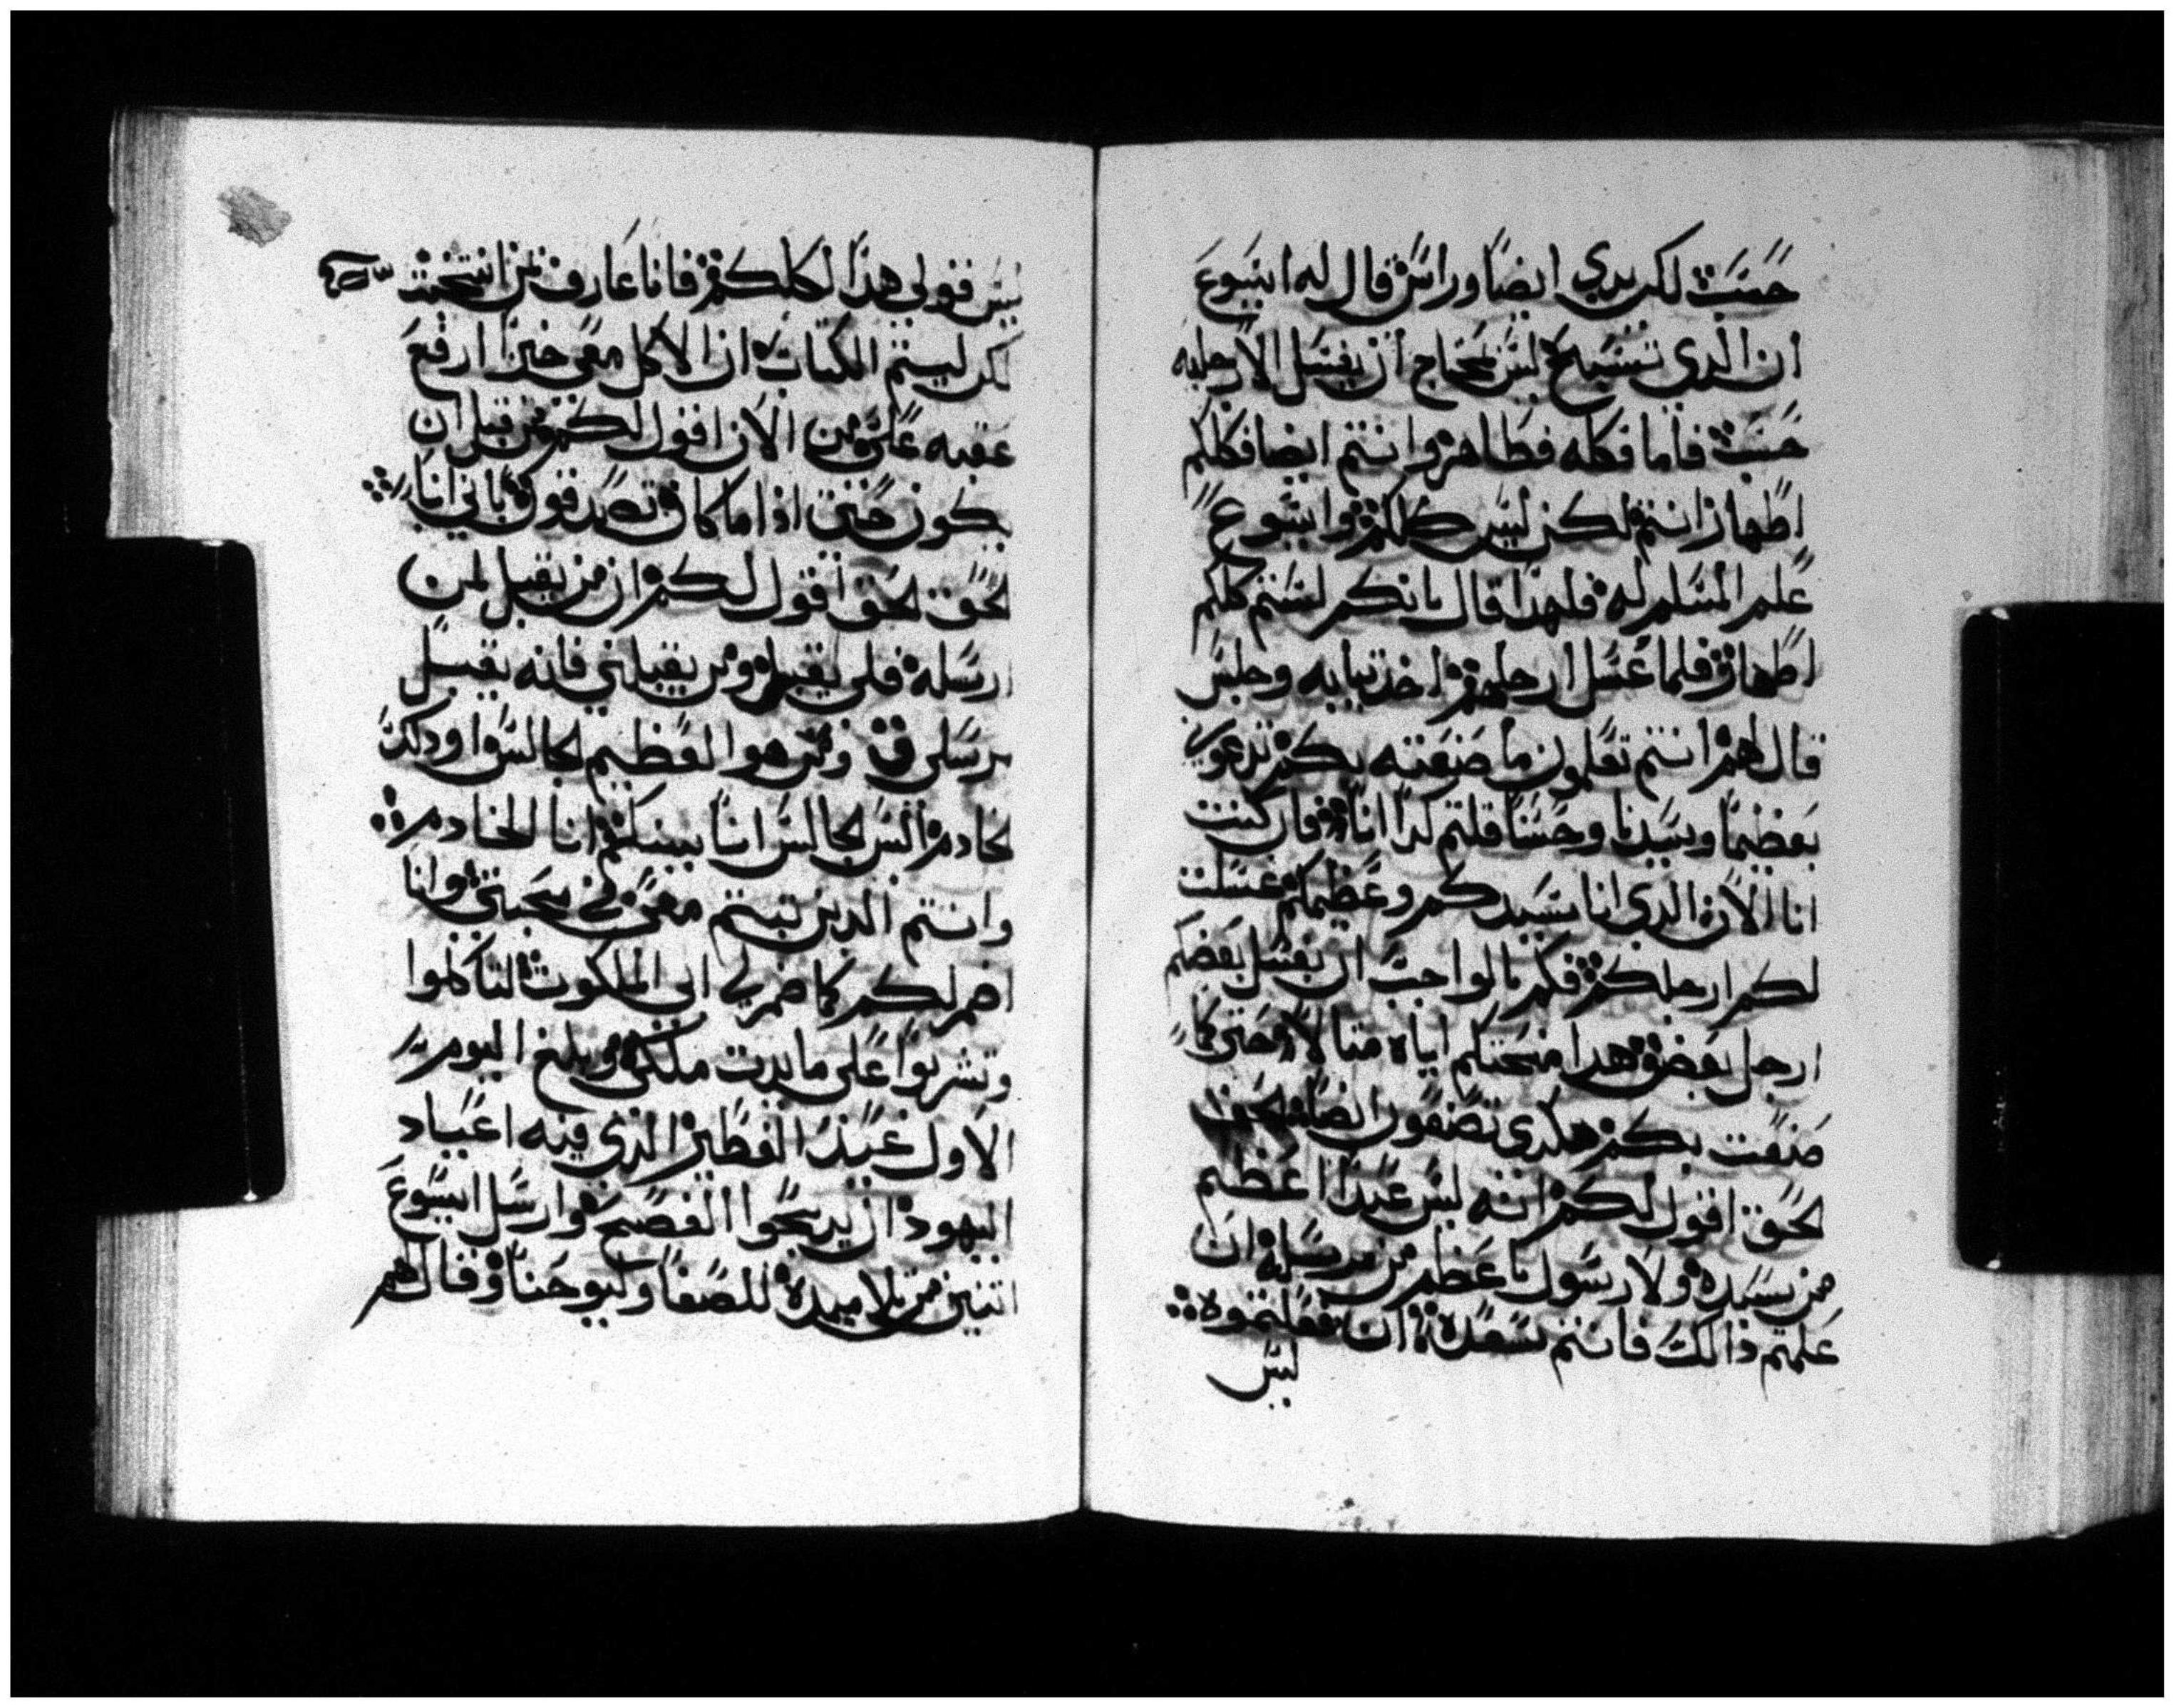 حسب لكن يدي ايضا وراسي قال له ايسوع
ان الذي تسبح ليس يحتاج ان يغسل الا رجليه
حسب فاما فكله فطاهر وانتم ايضا فكلكم
اطهار انتم لكن ليس كلكم وايسوع
علم المسلم له فلهذا قال بانكم لستم كلكم
اطهار فلما غسل ارجلهم اخذ تيابه وجلس
قال لهم انتم تعلمون ما صنعته بكم تدعوني
بعظيما وسيدنا وحسنا قلتم لدا انا فان كنت
انا الان الدي انا سيدكم وعظيمكم غسلت
لكم ارجلكم فكم بالواجب ان يغسل بعضكم
ارجل بعض هدا منحتكم اياه متالا حتى كما
صنعت بكم هكدى تصنعون ايضا لحق
لحق اقول لكم انه ليس عبدا اعظم
من سيده ولا رسول باعظم من مرسله ان
علمتم ذالك فانتم سعدة ان فعلتموه
ليس
ليس قولي هذا لكلكم فانا عارف بمن انتخبت
لكن ليتم الكتاب ان الاكل معي خبزا ارفع
عقبه علي من الان اقول لكم من قبل ان
يكون حتى اذا ما كان تصدقون باني انا
لحق لحق اقول لكم ان من يقبل لمن
ارسله فلي يقبل ومن يقبلني فانه يقبل
مرسلي ومن هوا العظيم لجالس او داك
لخادم اليس لجالس انا بينكم انا الخادم
وانتم الدين تبتم معي في محبتي وانا
اضمر لكم كما ضمر لي ابي الملكوت لتاكلوا
وتشربوا على مايدت ملكي وبلغ اليوم
الاول عيد الفطير الذي فيه اعياد
اليهود ان يدبحوا الفصح وارسل ايسوع
اتنين من تلاميده للصفا وليوحنا وقال لهم